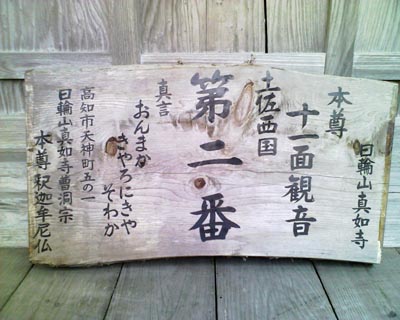 本尊
十一面観音
日輪山真如寺
土佐西国
第二番
真言
おんまか
きやろにきや
そわか
高知市天神町五の一
日輪山真如寺曹洞宗
本尊釈迦牟尼仏